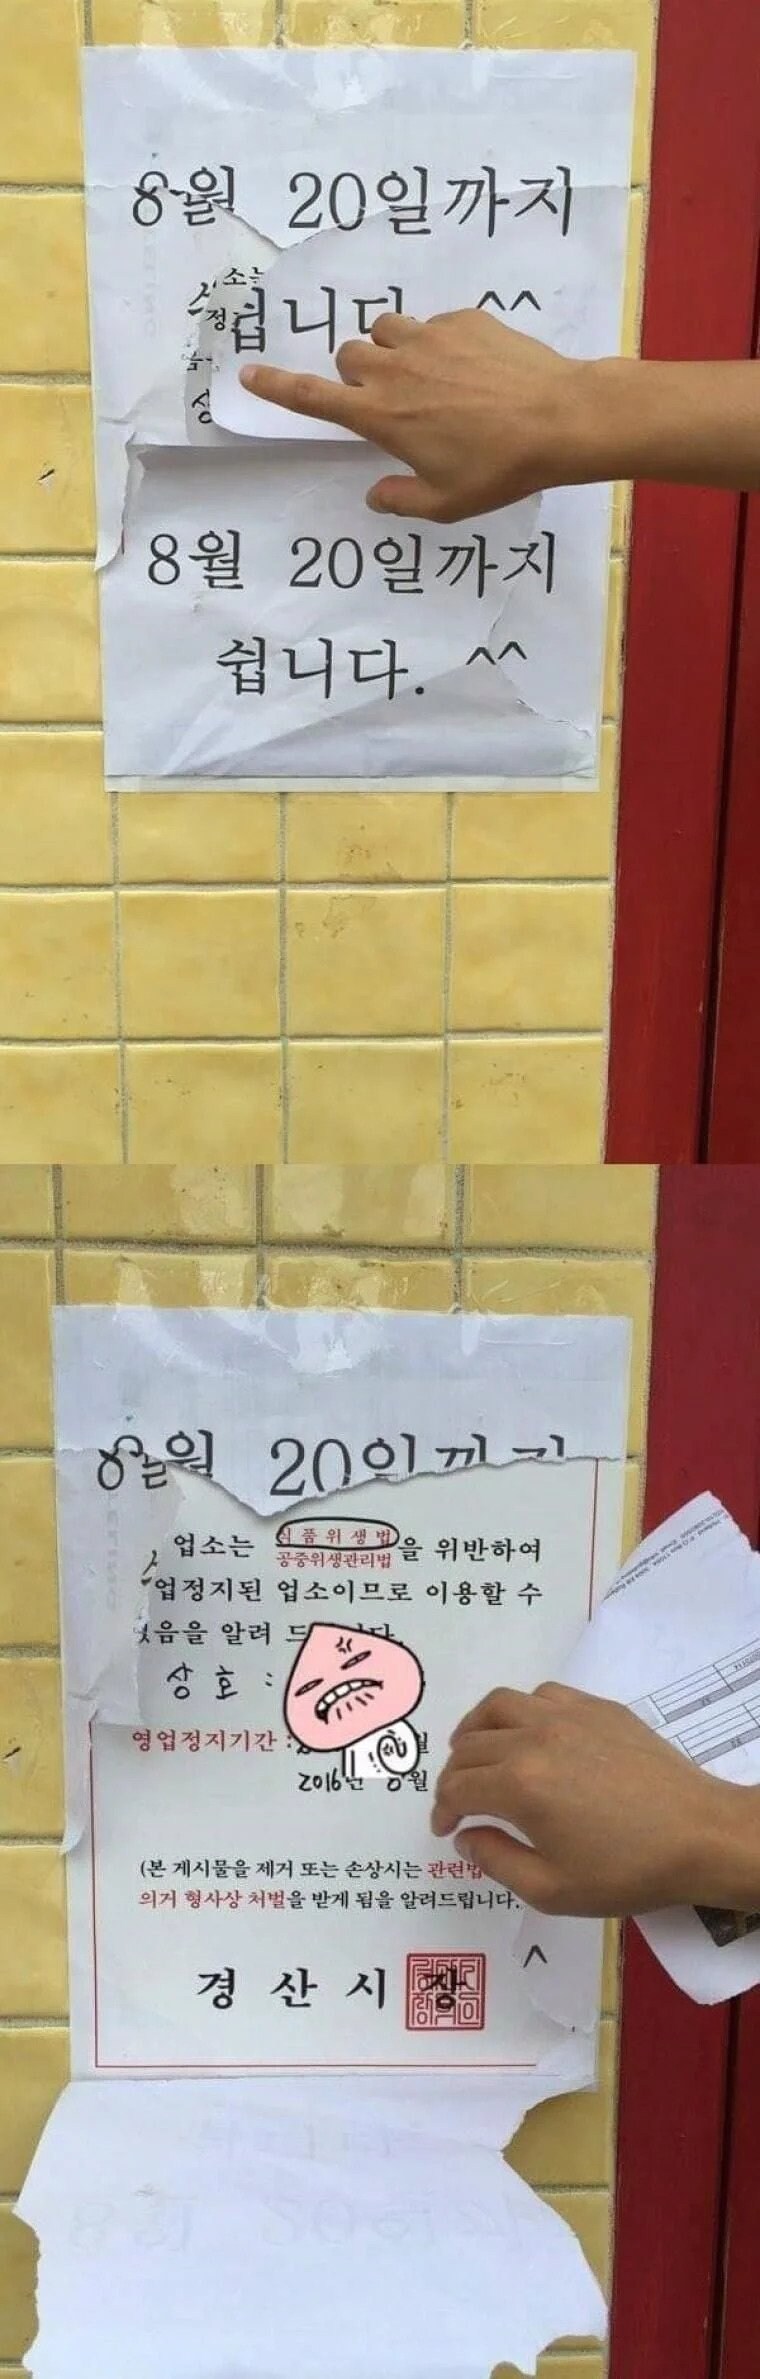 8월 20일까지
소는
정
쉽니다 ^^
상
8월 20일까지
쉽니다. ^^
8월 20일까지
업소는 식품위생법
공중위생관리법 을 위반하여
업정지된 업소이므로 이용할 수
없음을 알려 드
상 호 :
영업정지기간 :
2016년 8월
(본 게시물을 제거 또는 손상시는 관련법
의거 형사상 처벌을 받게 됨을 알려드립니다.
^
경 산 시 장